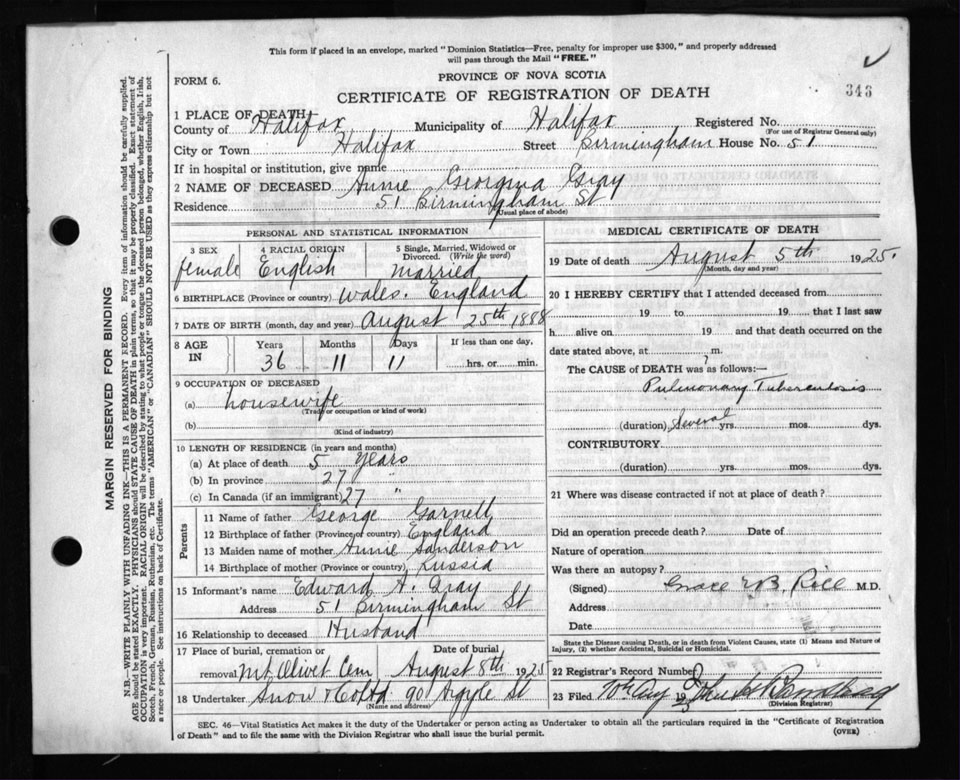 This form if placed in an envelope, marked "Dominion Statistics—Free, penalty for improper use $300," and properly addressed
will pass through the Mail "FREE."
FORM 6.
PROVINCE OF NOVA SCOTIA
CERTIFICATE OF REGISTRATION OF DEATH
343
1 PLACE OF DEATH
County of Halifax Municipality of Halifax Registered No.
(For use of Registrar General only)
City or Town Halifax Street Birmingham House No. 51
If in hospital or institution, give name
2 NAME OF DECEASED Annie Georgina Gray
Residence 51 Birmingham St
(Usual place of abode)
PERSONAL AND STATISTICAL INFORMATION
3 SEX 4 RACIAL ORIGIN 5 Single, Married, Widowed or
Divorced. (Write the word)
female English married
6 BIRTHPLACE (Province or country) Wales. England
7 DATE OF BIRTH (month, day and year) August 25th 1888
8 AGE IN Years Months Days If less than one day,
36 11 11 hrs. or min.
9 OCCUPATION OF DECEASED
(a) housewife
(Trade or occupation or kind of work)
(b)
(Kind of industry)
10 LENGTH OF RESIDENCE (in years and months)
(a) At place of death 5 years
(b) In province 27 "
(c) In Canada (if an immigrant) 27 "
Parents
11 Name of father George Garnell
12 Birthplace of father (Province or country) England
13 Maiden name of mother Annie Sanderson
14 Birthplace of mother (Province or country) Russia
15 Informant's name Edward A. Gray
Address 51 Birmingham St
16 Relationship to deceased Husband
17 Place of burial, cremation or Date of burial
removal Mt. Olivet Cem August 8th 1925
18 Undertaker Snow & Co Ltd. 90 Argyle St
(Name and address)
MEDICAL CERTIFICATE OF DEATH
19 Date of death August 5th 1925.
(Month, day and year)
20 I HEREBY CERTIFY that I attended deceased from
19 to 19 that I last saw
h alive on 19 and that death occurred on the
date stated above, at m.
The CAUSE of DEATH was as follows:—
Pulmonary Tuberculosis
(duration) Several yrs. mos. dys.
CONTRIBUTORY
(duration) yrs. mos. dys.
21 Where was disease contracted if not at place of death?
Did an operation precede death? Date of
Nature of operation
Was there an autopsy?
(Signed) Grace E. B. Rice M.D.
Address
Date
State the Disease causing Death, or in death from Violent Causes, state (1) Means and Nature of
Injury, (2) whether Accidental, Suicidal or Homicidal.
22 Registrar's Record Number
23 Filed 10th Aug 192
(Division Registrar)
SEC. 46—Vital Statistics Act makes it the duty of the Undertaker or person acting as Undertaker to obtain all the particulars required in the "Certificate of Registration
of Death" and to file the same with the Division Registrar who shall issue the burial permit.
(OVER)
MARGIN RESERVED FOR BINDING
N.B.—WRITE PLAINLY WITH UNFADING INK—THIS IS A PERMANENT RECORD. Every item of information should be carefully supplied.
AGE should be stated EXACTLY. PHYSICIANS should STATE CAUSE OF DEATH in plain terms, so that it may be properly classified. Exact statement of
OCCUPATION is very important. RACIAL ORIGIN will be described by stating to what people or tongue the deceased person belonged, whether English, Irish,
Scotch, French, German, Russian, Ruthenian, etc. The terms "AMERICAN" or "CANADIAN" SHOULD NOT BE USED as they express citizenship but not
a race or people. See instructions on back of Certificate.